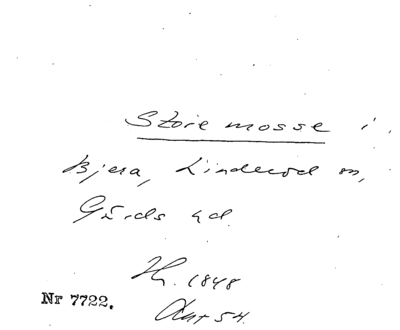 Store mosse i
Bjera, Linderöd sn,
Gärds hd.
Hg. 1848
Nr 7722.